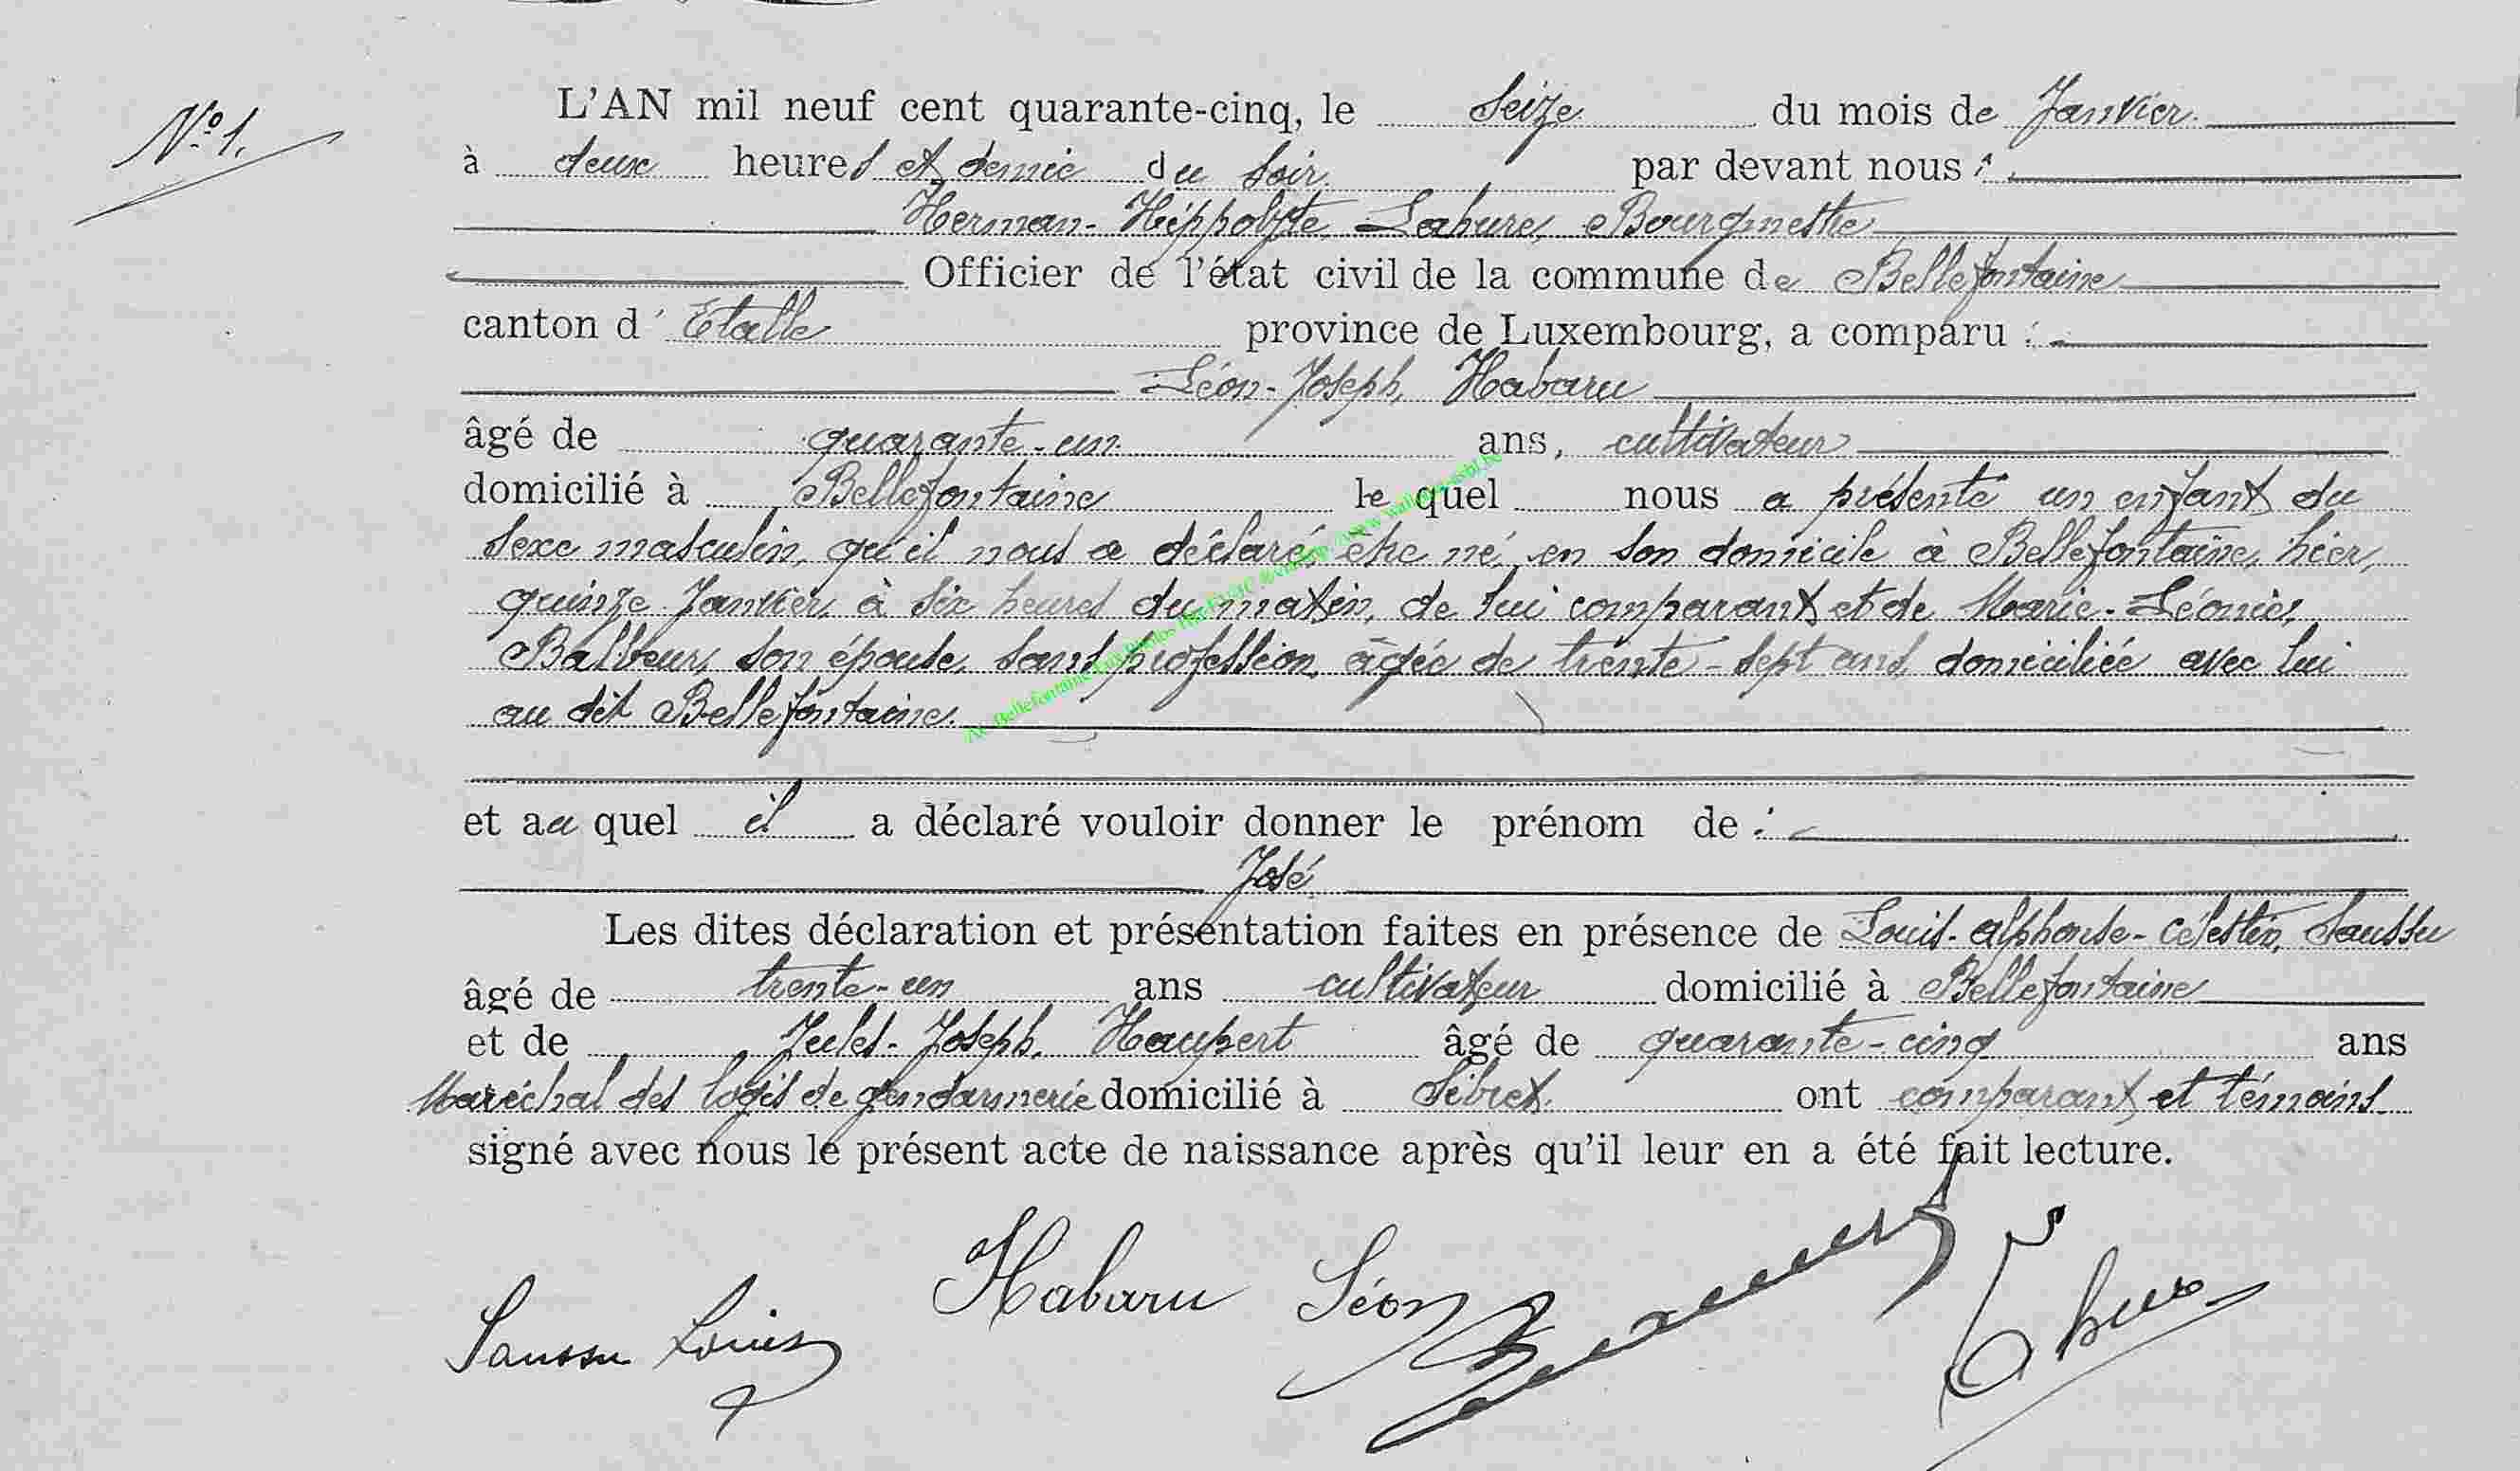 N° 1.
L'AN mil neuf cent quarante-cinq, le Seize du mois de Janvier.
à deux heures et demie du soir, par devant nous :
Herman-Hippolyte, Lahure, Bourgmestre
Officier de l'état civil de la commune de Bellefontaine
canton d'Etalle province de Luxembourg, a comparu :
Léon-Joseph, Habaru
âgé de quarante-un ans, cultivateur
domicilié à Bellefontaine lequel nous a présenté un enfant du
sexe masculin, qu'il nous a déclaré être né, en son domicile à Bellefontaine, hier,
quinze Janvier, à six heures du matin, de lui comparant et de Marie-Léonie,
Balbeur, son épouse, sans profession, âgée de trente-sept ans, domiciliée avec lui
au dit Bellefontaine.
et au quel il a déclaré vouloir donner le prénom de :
José
Les dites déclaration et présentation faites en présence de Louis-Alphonse-Célestin, Saussu
âgé de trente-un ans cultivateur domicilié à Bellefontaine
et de Jules-Joseph, Haupert âgé de quarante-cinq ans
Maréchal des logis de gendarmerie domicilié à Sibret. ont comparant et témoins.
signé avec nous le présent acte de naissance après qu'il leur en a été fait lecture.
Habaru Léon
Saussu Louis